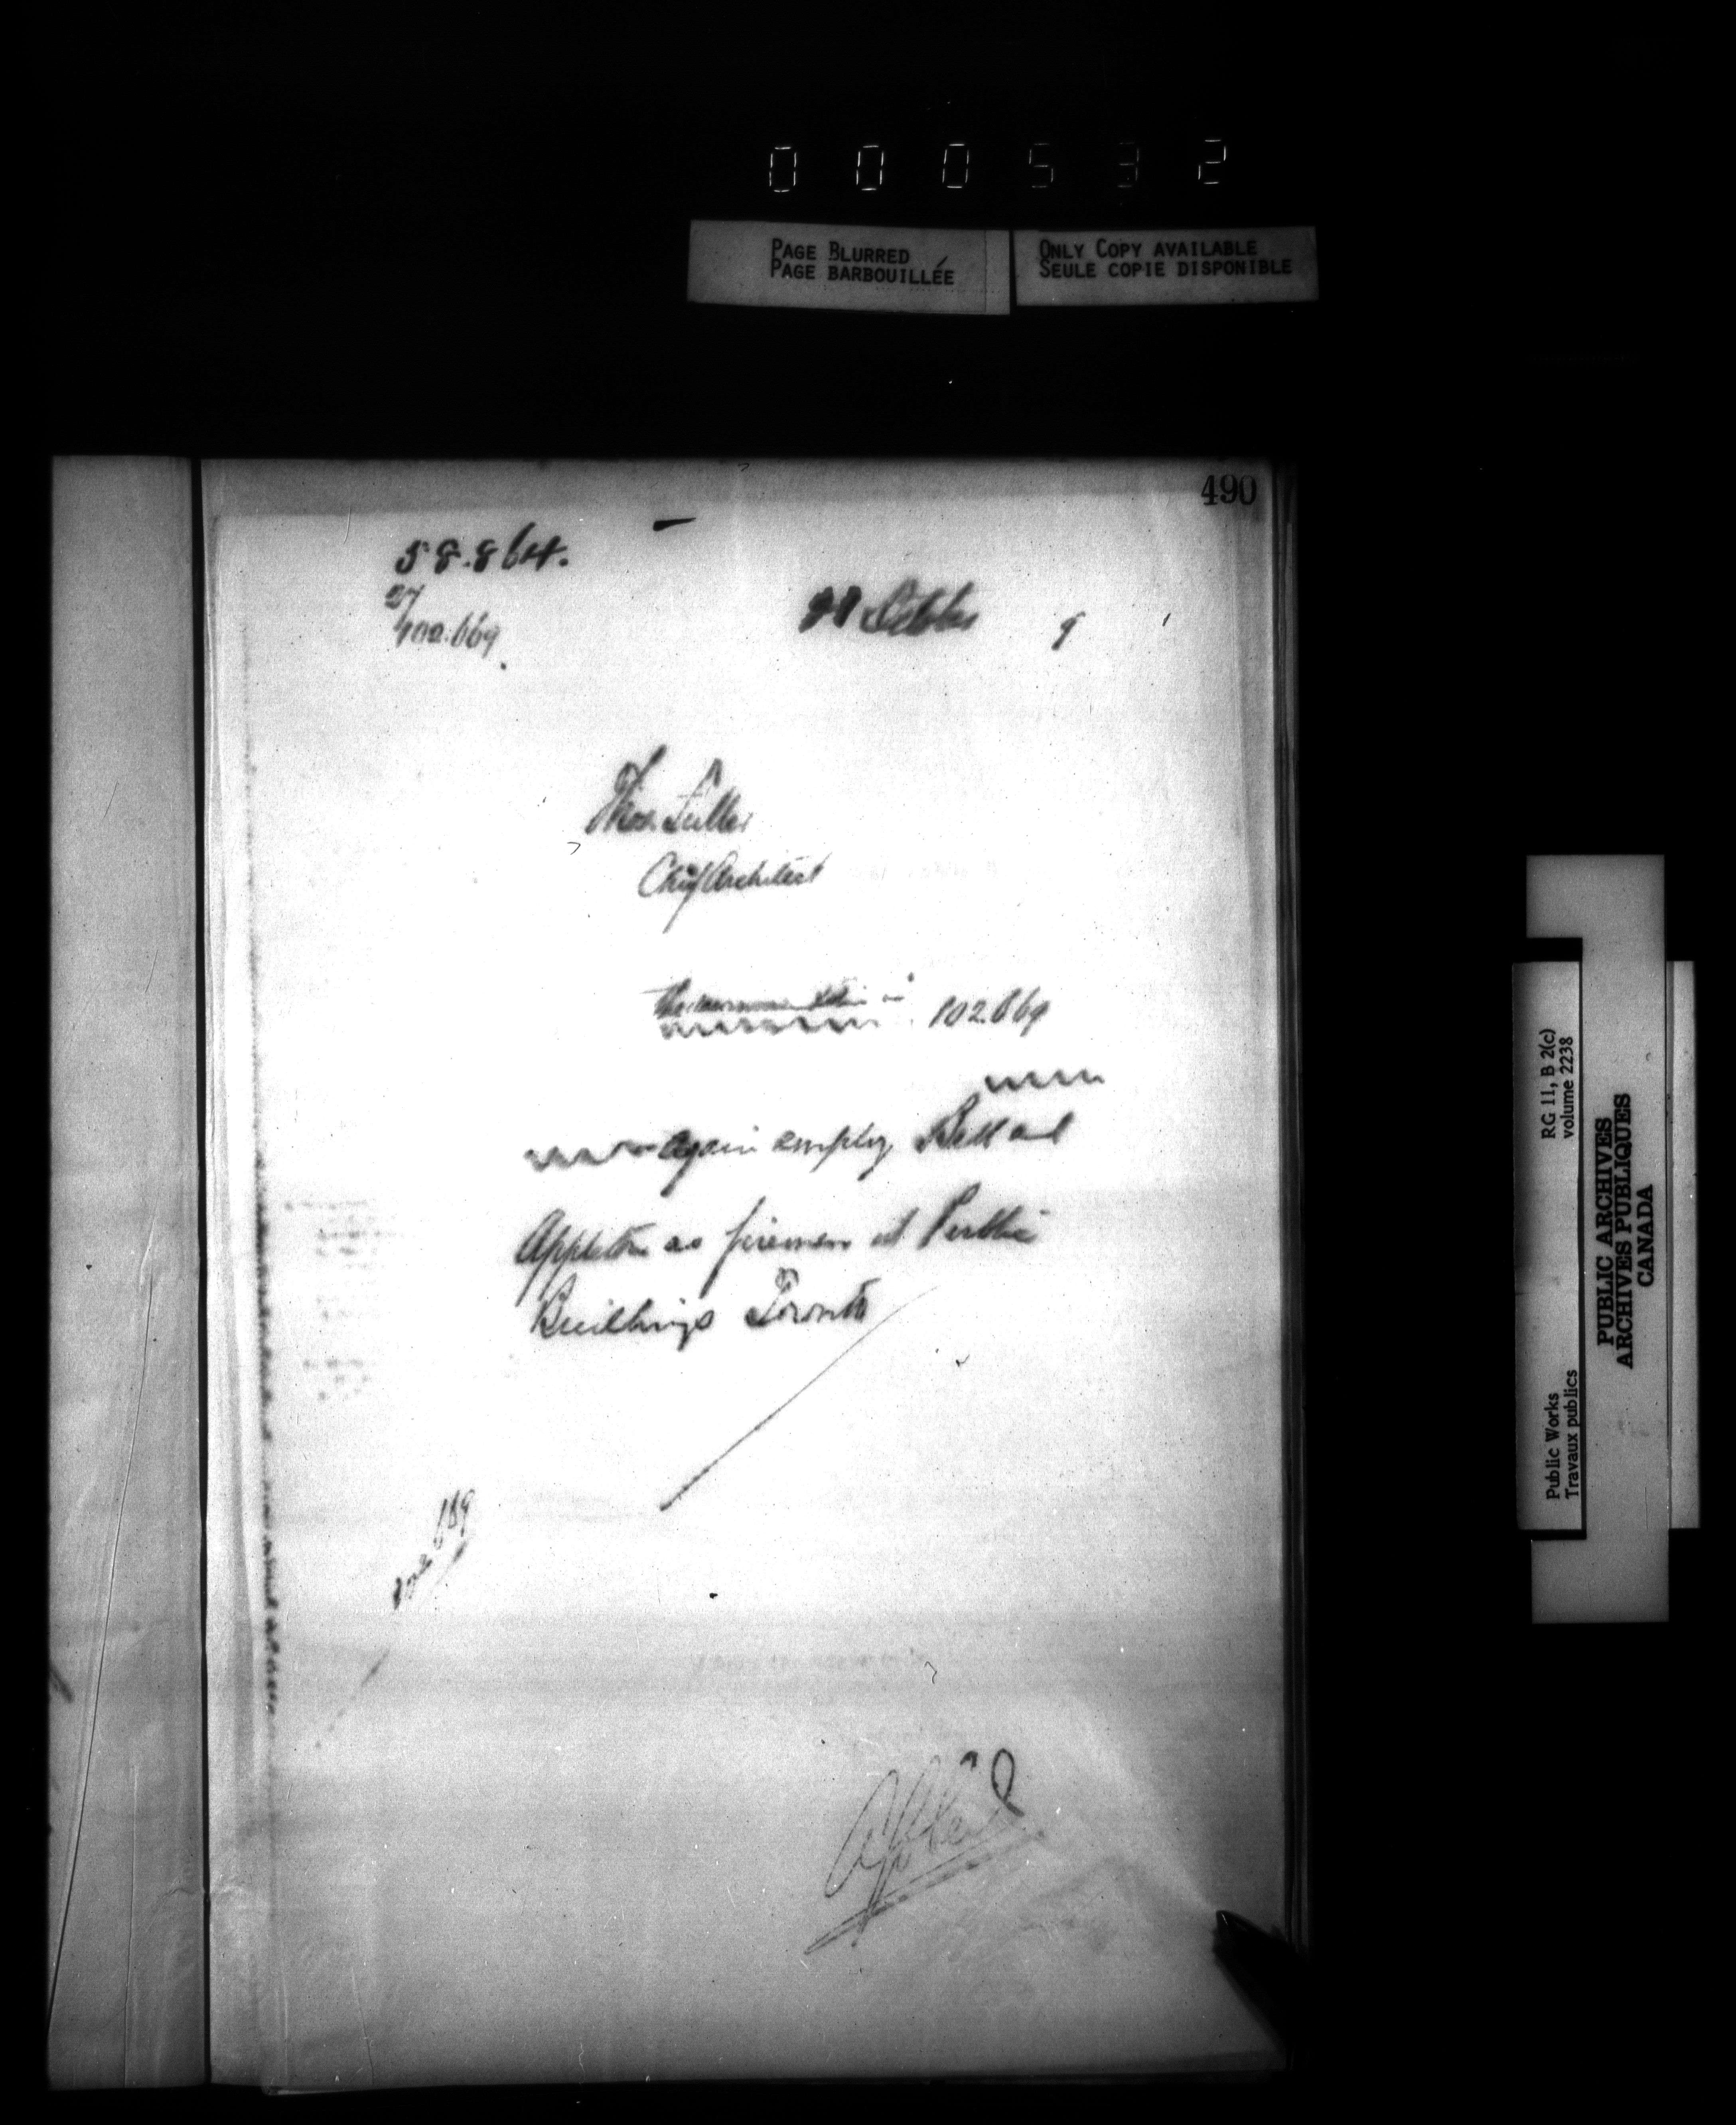 000532
PAGE BLURRED
PAGE BARBOUILLÉE
ONLY COPY AVAILABLE
SEULE COPIE DISPONIBLE
490
58.864.
102.669
9
Thos. Fuller
Chief Architect
102669
again employ Bell and
Appleton as firemen at Public
Buildings Toronto
RG 11, B 2(c)
volume 2238
Public Works
Travaux publics
PUBLIC ARCHIVES
ARCHIVES PUBLIQUES
CANADA